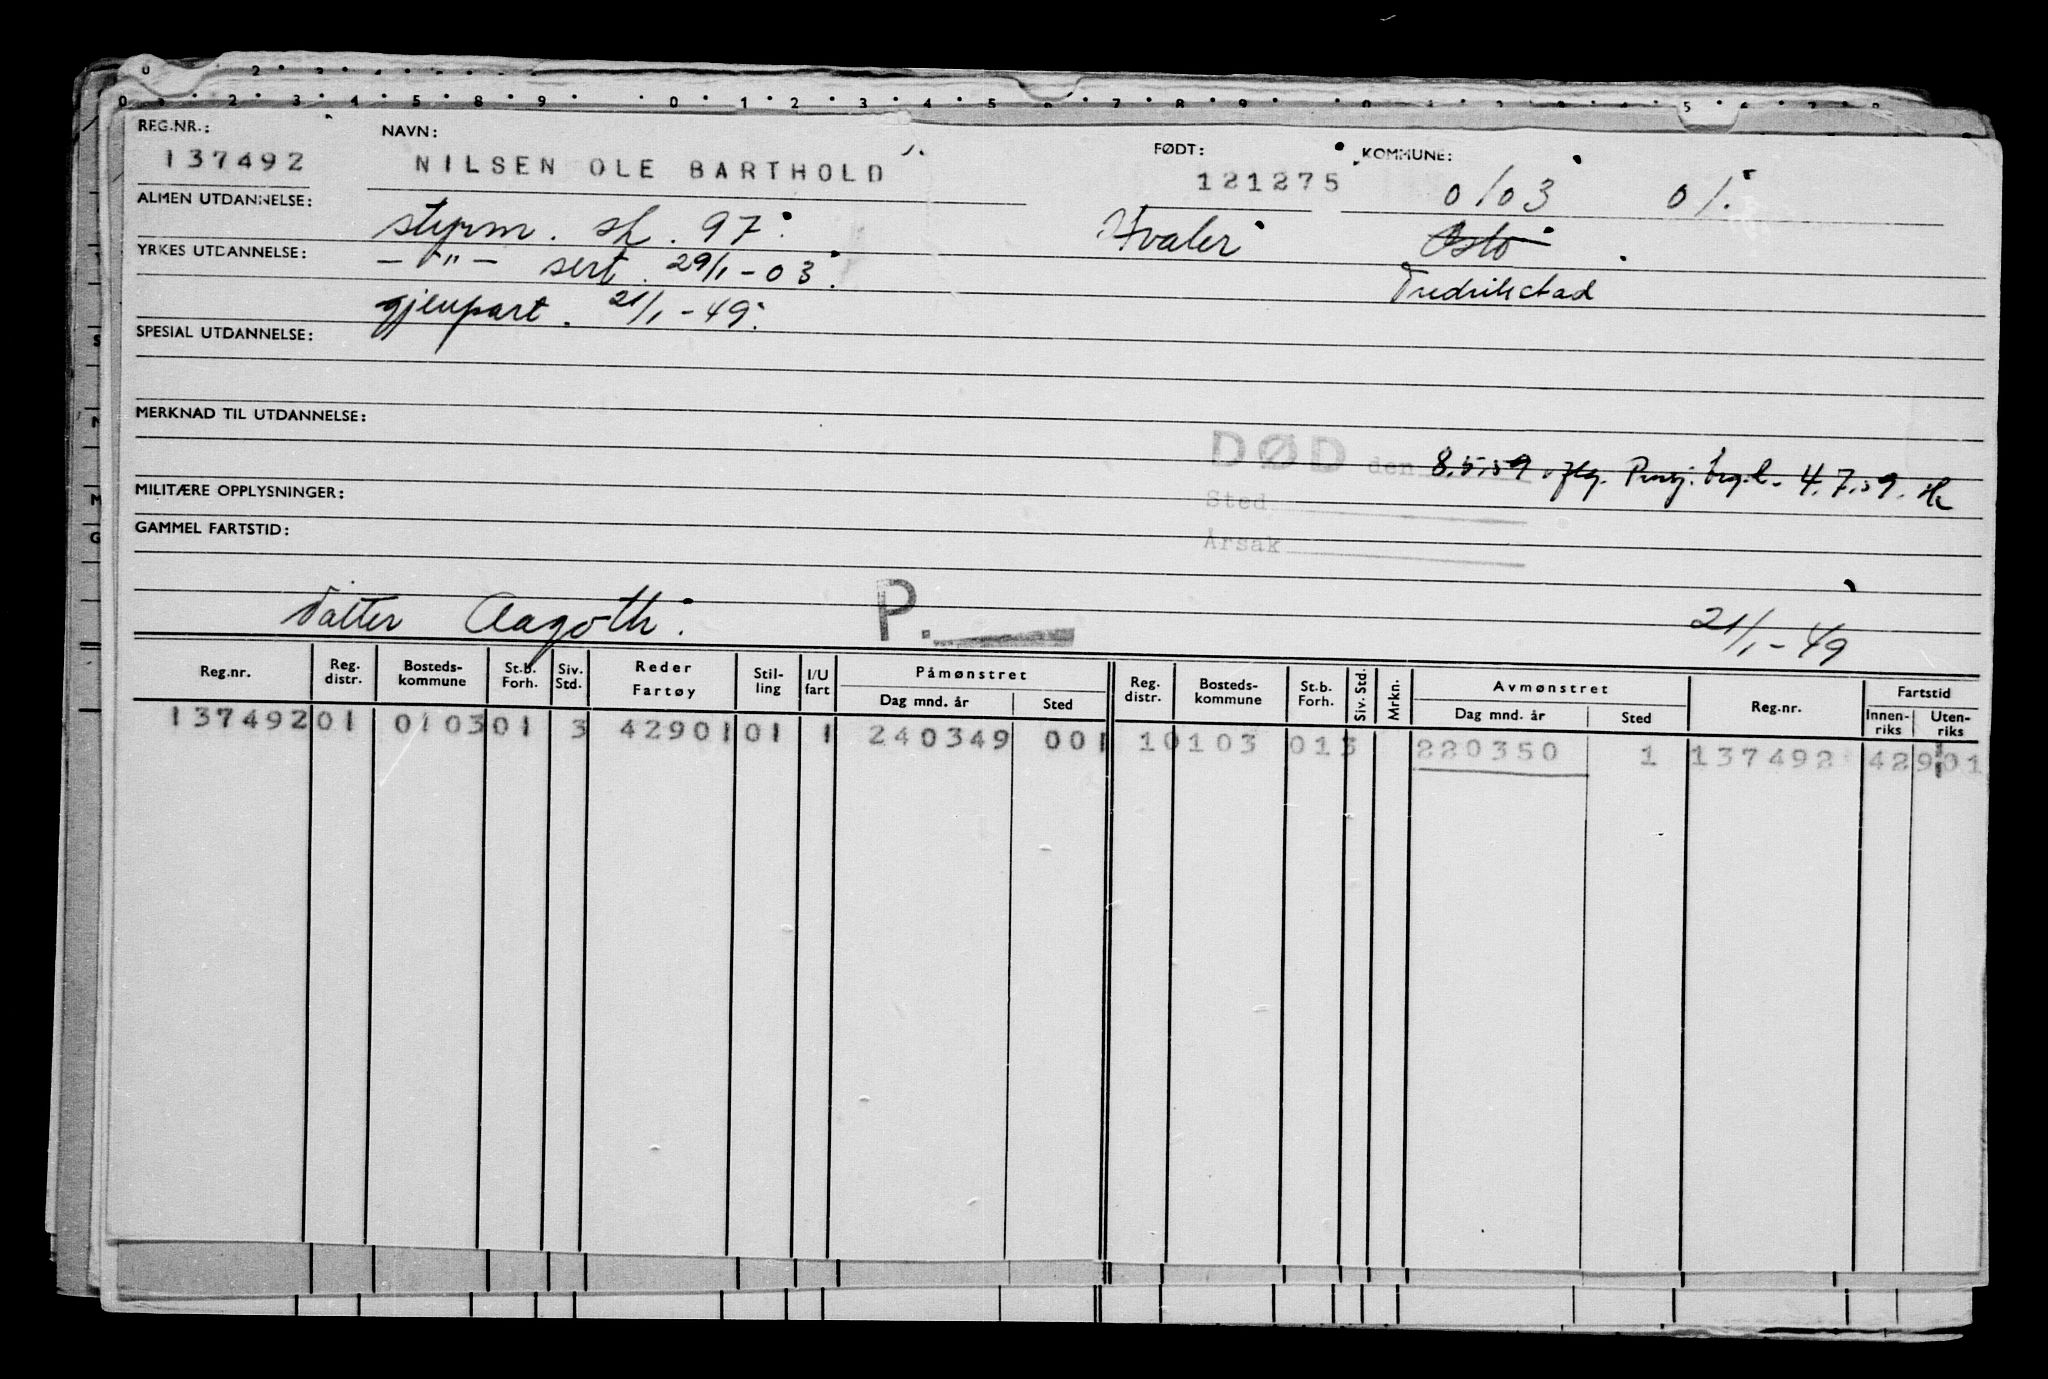 REG.NR.: NAVN: FØDT: KOMMUNE:
137492 NILSEN OLE BARTHOLD 121275 0103 01.
ALMEN UTDANNELSE: styrm. sk. 97. Hvaler Oslo
YRKES UTDANNELSE: - " - sert. 29/1-03. Fredrikstad
gjenpart. 21/1-49.
SPESIAL UTDANNELSE:
MERKNAD TIL UTDANNELSE:
DØD den 8.5.59 iflg. 4.7.59.
MILITÆRE OPPLYSNINGER: Sted
GAMMEL FARTSTID: Årsak
Datter Aagoth. P. 21/1-49
Reg.nr. Reg. distr. Bosteds-kommune St.b. Forh. Siv. Std. Reder Fartøy Stil-ling I/U fart Påmønstret Dag mnd. år Sted Reg. distr. Bosteds-kommune St.b. Forh. Siv. Std. Mrkn. Avmønstret Dag mnd. år Sted Reg.nr. Fartstid Innen-riks Uten-riks
137492 01 0103 01 3 42901 01 1 240349 001 10103 013 220350 1 137492 42901